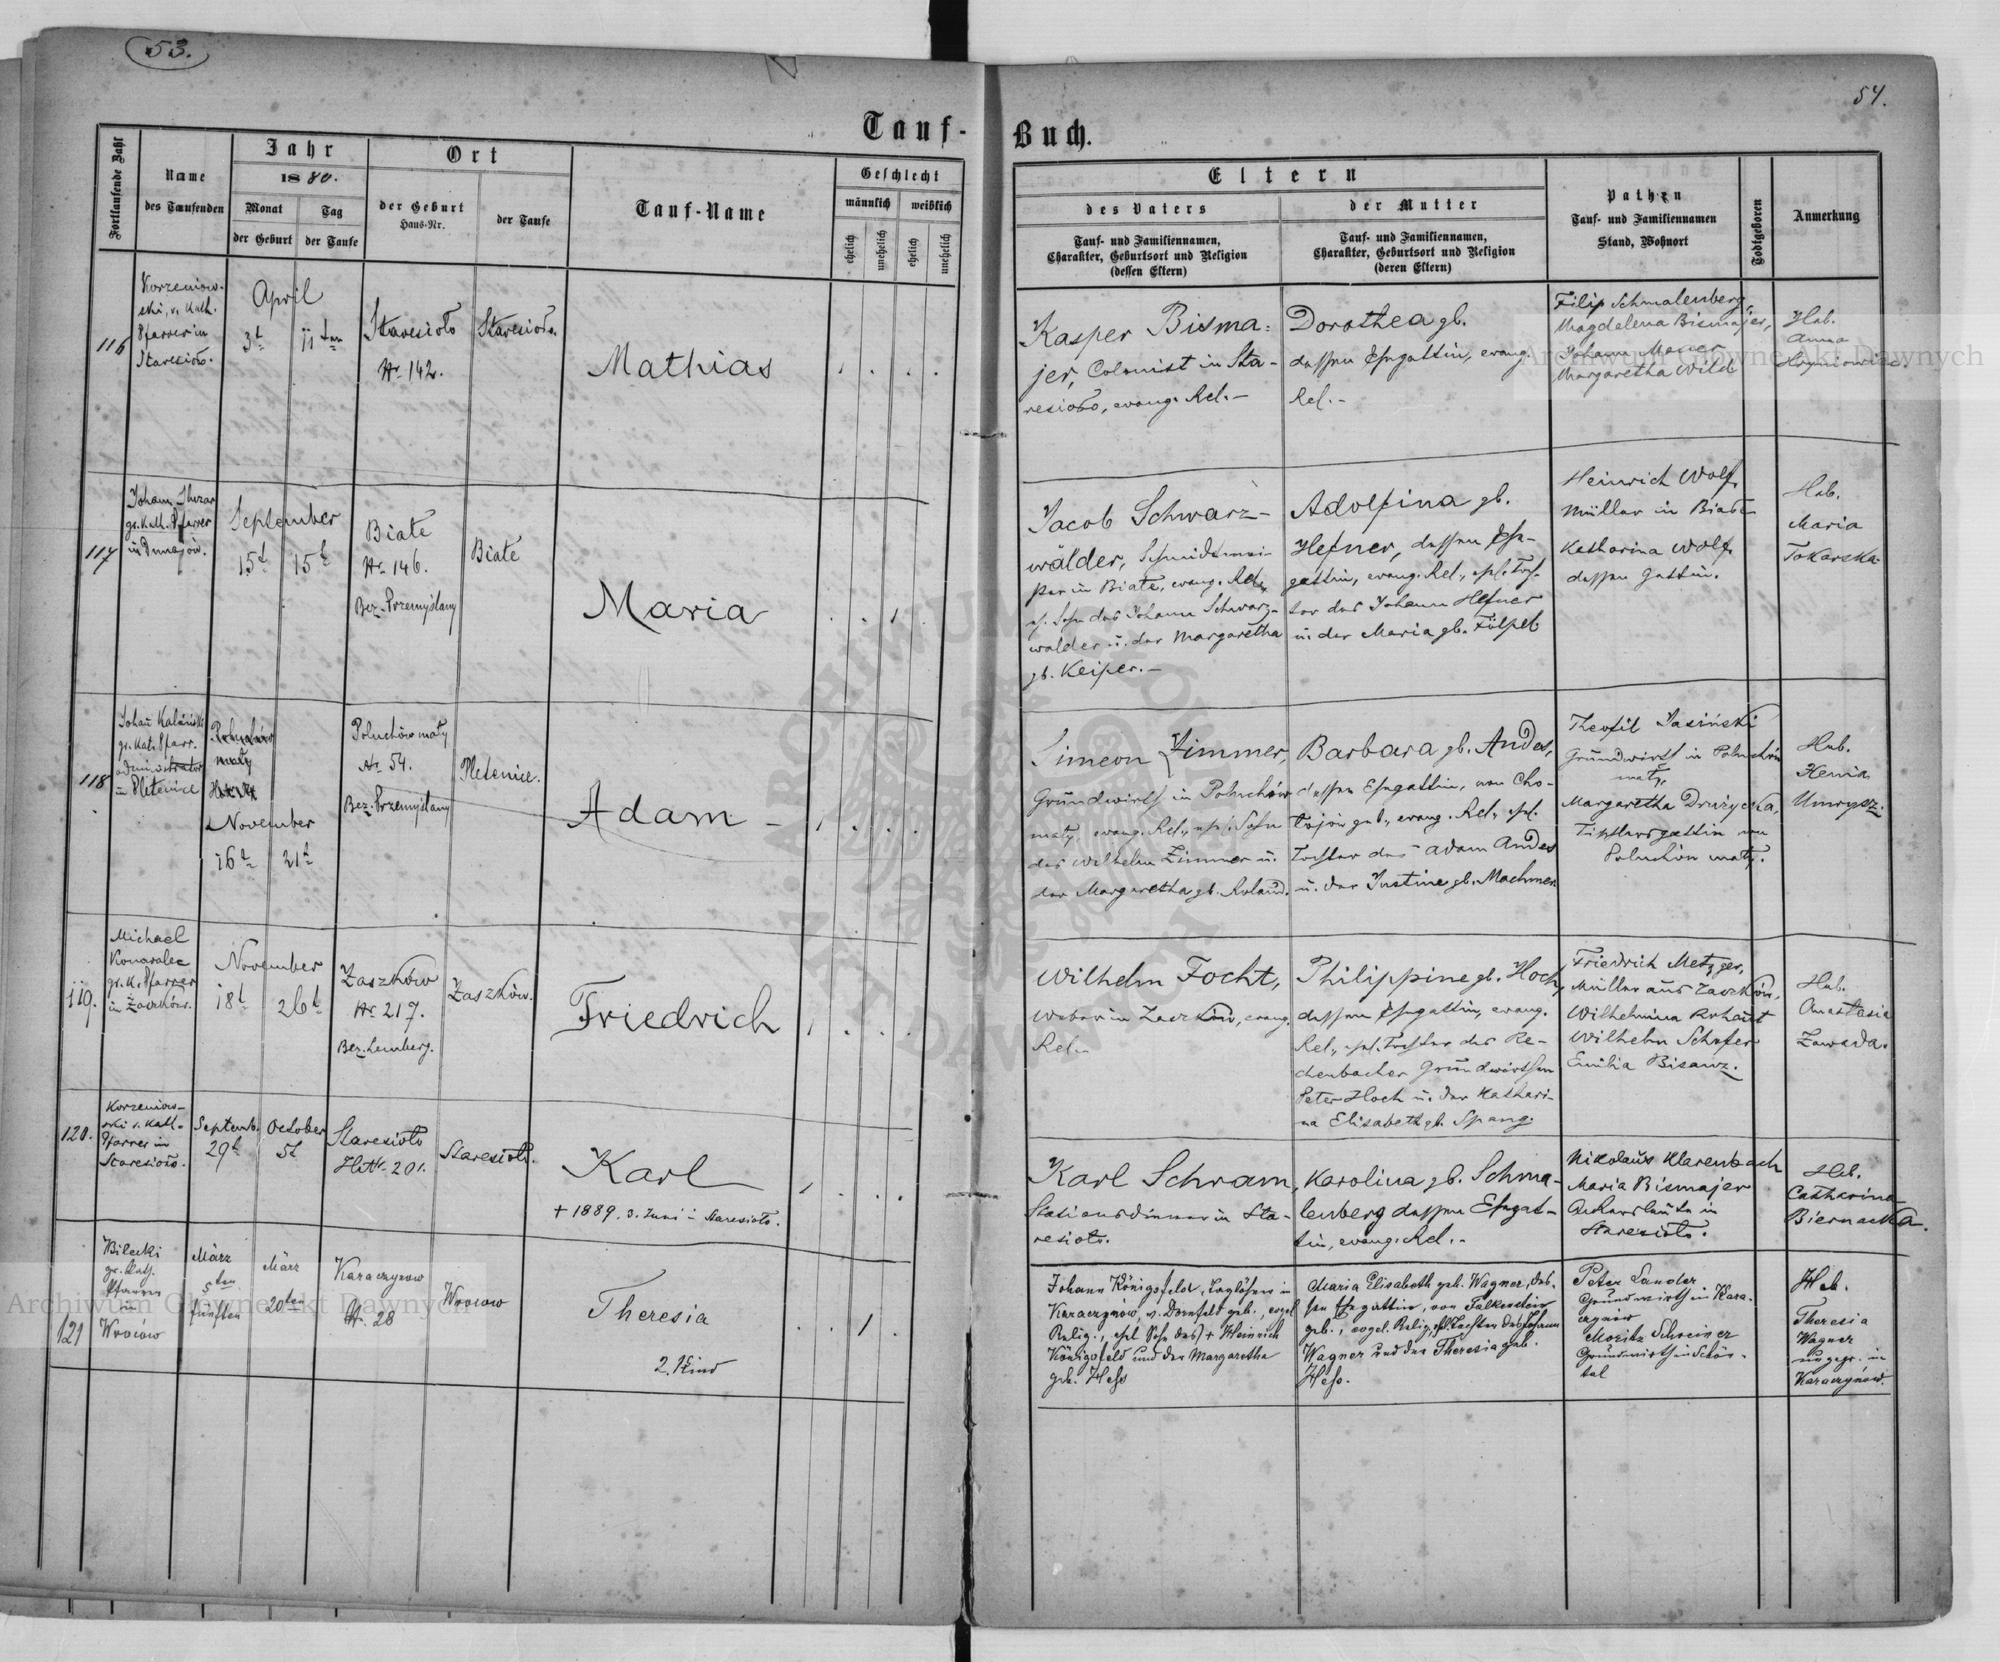 53.
54.
Tauf-Buch.
Fortlaufende Zahl
Name
des Taufenden
Jahr
1880.
Monat
Tag
der Geburt
der Taufe
Ort
der Geburt
Haus-Nr.
der Taufe
Tauf-Name
Geschlecht
männlich
weiblich
ehelich
unehelich
ehelich
unehelich
Eltern
des Vaters
Tauf- und Familiennamen,
Charakter, Geburtsort und Religion
(dessen Eltern)
der Mutter
Tauf- und Familiennamen,
Charakter, Geburtsort und Religion
(deren Eltern)
Pathen
Tauf- und Familiennamen
Stand, Wohnort
Todtgeboren
Anmerkung
116
Korzeniow-
ski, r. Kath.
Pfarrer in
Staresioło.
April
3t
11ten
Staresioło
Nr. 142.
Staresioło.
Mathias
Kasper Bisma-
jer, Colonist in Sta-
resioło, evang. Rel. –
Dorothea gb.
dessen Ehegattin, evang.
Rel. –
Filip Schmalenberg
Magdalena Bismajer,
Johann
Margaretha Wild
Heb.
Anna
117
Johann
gr. kath. Pfarrer
in Dunajów.
September
15t
15t
Białe
Nr. 146.
Bez. Przemyślany
Białe
Maria
Jacob Schwarz-
wälder, Schneidemei-
ster in Białe, evang. Rel.,
eh. Sohn des Johann Schwarz-
walder u. der Margaretha
gb. Keiper. –
Adolfina gb.
Hefner, dessen Ehe-
gattin, evang. Rel., ehl. Toch-
ter des Johann Hefner
u. der Maria gb. Fölpel
Heinrich Wolf,
Müller in Białe
Katharina Wolf,
dessen Gattin.
Heb.
Maria
Tokarska
118
Johann
gr. kat. Pfarr.
administrator
in Pletenice
November
16t
21t
Poluchów mały
Nr. 54.
Bez. Przemyślany
Pletenice.
Adam –
Simeon Zimmer,
Grundwirth in Poluchów
mały, evang. Rel., ehl. Sohn
des Wilhelm Zimmer u.
der Margaretha gb. Roland.
Barbara gb. Andes,
dessen Ehegattin, von Cho-
tojów geb., evang. Rel., ehl.
Tochter des Adam Andes
u. der Justine gb. Machmer.
Theofil Jasiński
Grundwirth in Poluchów
mały,
Margaretha Drużycka,
Tischlersgattin von
Poluchów mały.
Heb.
Henia
119.
Michael
Konovalec
gr. k. Pfarrer
in Zaszków.
November
18t
26t
Zaszków
Nr. 217.
Bez. Lemberg.
Zaszków.
Friedrich
Wilhelm Focht,
Weber in Zaszków, evang.
Rel. –
Philippine gb. Hoch,
dessen Ehegattin, evang.
Rel., ehl. Tochter des Re-
chenbacher Grundwirthen
Peter Hoch u. der Kathari-
na Elisabeth gb. Spang.
Friedrich Metzger,
Müller aus Zaszków,
Wilhelmina
Wilhelm Schefer
Emilia Bisanz.
Heb.
Anastasia
Zawada.
120.
Korzeniow-
ski r. kath.
Pfarrer in
Staresioło.
Septemb.
29t
October
5t
Staresioło
HNr. 201.
Staresioło.
Karl
+ 1889. 3. Juni in Staresioło.
Karl Schram,
Stationsdiener in Sta-
resioło.
Karolina gb. Schma-
lenberg dessen Ehegat-
tin, evang. Rel. –
Nikolaus Klarenbach
Maria Bismajer
Ackersleute in
Staresioło.
Heb.
Catharina
Biernacka.
121
Bilecki
gr. kath.
Pfarrer
in
Wrocow
März
5ten
fünften
März
20ten
Karaczynow
N. 28
Wrocow
Theresia
2. Kind
Johann Königsfeld, Taglöhner in
Karaczynów, v. Dornfeld geb., evgel.
Relig., ehl Sohn des + Heinrich
Königsfeld und der Margaretha
geb. Hess
Maria Elisabeth geb. Wagner, des-
sen Ehegattin, von Falkenstein
geb., evgel. Relig., ehl. Tochter des Johann
Wagner und der Theresia geb.
Hess.
Peter Sander
Grundwirth in Kara-
czynów
Moritz Schreiner
Grundwirth in Schön-
tal
Heb.
Theresia
Wagner
ungepr. in
Karaczynów.
Archiwum Główne Akt Dawnych
Archiwum Główne Akt Dawnych